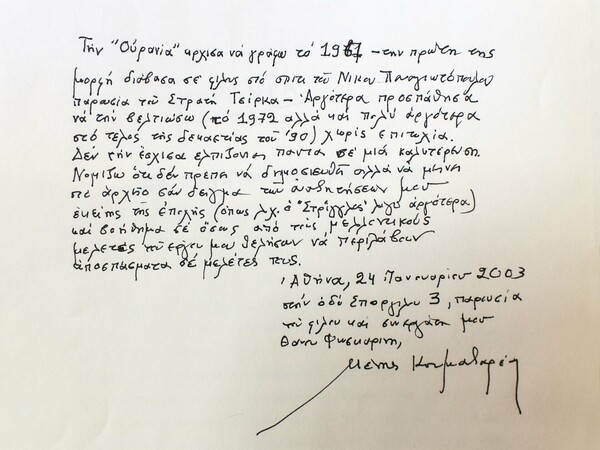 Την "Ουρανία" άρχισα να γράφω το 1961 – την πρώτη της
μορφή διάβασα σε φίλους στό σπίτι τοῦ Νίκου Παναγιωτόπουλου
παρουσία τοῦ Στρατή Τσίρκα – Ἀργότερα προσπάθησα
νά τήν βελτιώσω (τό 1972 ἀλλά καί πολύ ἀργότερα
στό τέλος τῆς δεκαετίας τοῦ '90) χωρίς ἐπιτυχία.
Δέν τήν ἔσχισα ἐλπίζοντας πάντα σέ μιά καλυτέρευση.
Νομίζω ὅτι δέν πρέπει νά δημοσιευθῆ ἀλλά νά μείνη
στό ἀρχεῖο σάν δεῖγμα τῶν ἀναζητήσεών μου
ἐκείνης τῆς ἐποχῆς (ὅπως λ.χ. ὁ "Στρίγγλος" λίγο ἀργότερα)
καί βοήθημα σέ ὅσους ἀπό τούς μελλοντικούς
μελετητές τοῦ ἔργου μου θελήσουν νά περιλάβουν
ἀποσπάσματα σέ μελέτες τους.
Ἀθήνα, 24 Ιανουαρίου 2003
στήν ὁδό 3, παρουσία
τοῦ φίλου καί συνεργάτη μου
Θάνου Φωσκαρίνη,
Μένης Κουμανταρέας